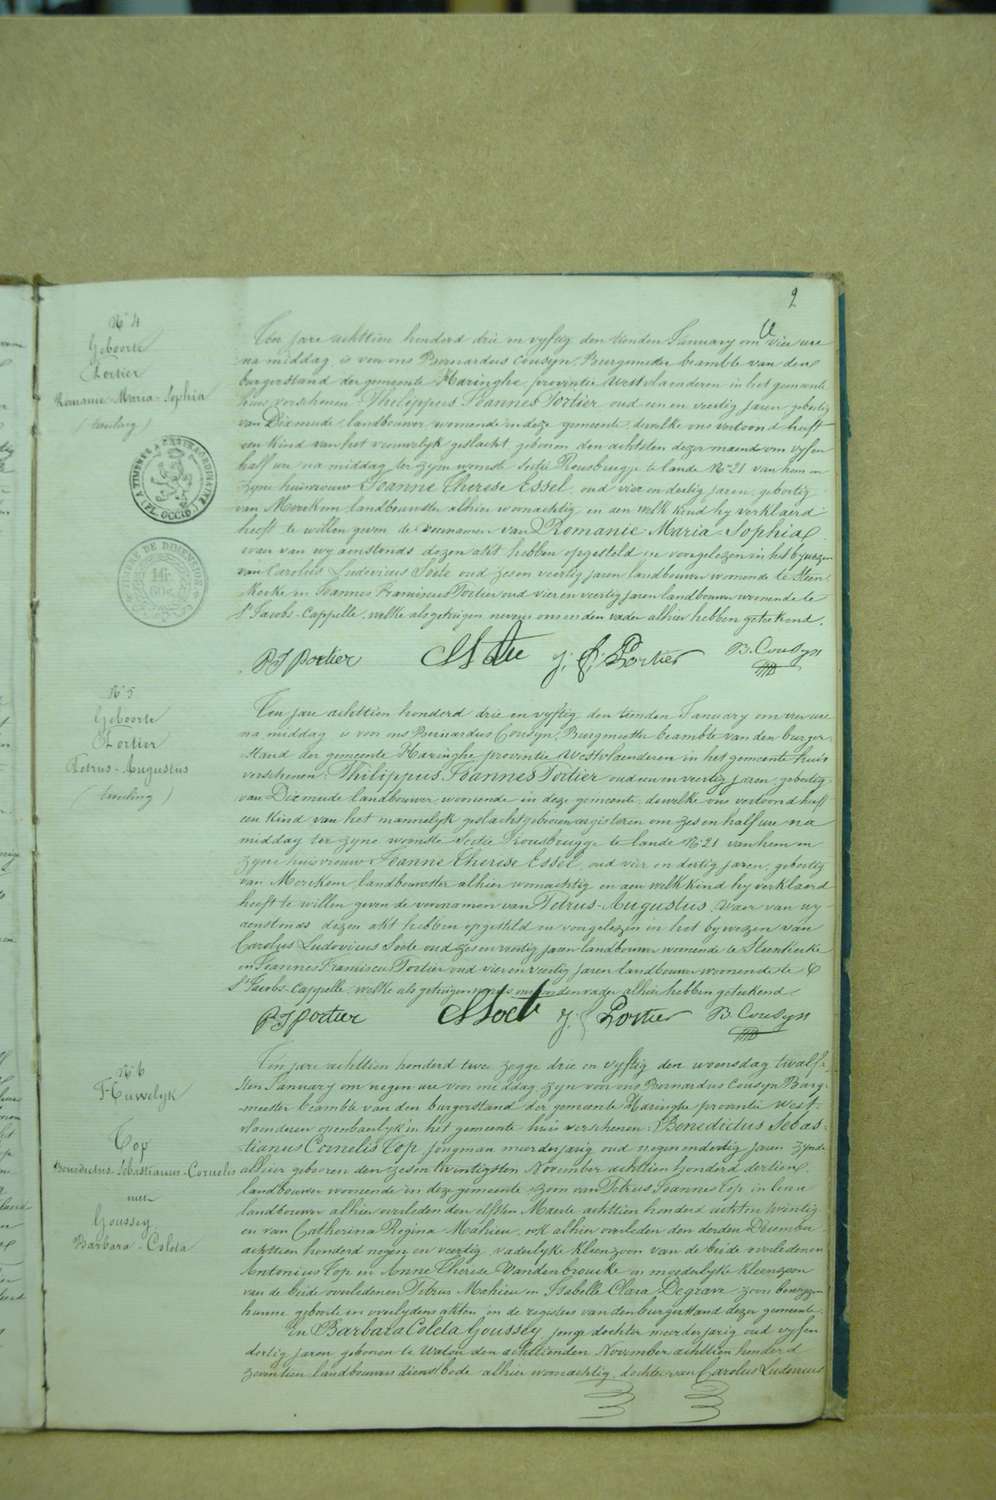 2
N° 4
Geboorte
Portier
Romanie-Maria-Sophia
(tweeling)
TIMBRE EXTRAORDINAIRE
(FL. OCCID.)
TIMBRE DE DIMENSION
Ten jare achttien honderd drie en vyftig den tienden January om vier ure
na middag is voor ons Bernardus Cousyn, Burgmeester beambte van den
burgerstand der gemeente Haringhe, provintie Westvlaenderen in het gemeente
huis verschenen: Philippus Joannes Portier oud een en veertig jaren geboortig
van Dixmude, landbouwer, woonende in deze gemeente, dewelke ons vertoond heeft
een kind van het vrouwelyk geslacht, geboren den achtsten dezer maend om vyf en
half ure na middag ter zyner woonste Sectie Rousbrugge te lande N° 21 van hem en
zyne huisvrouw Joanne Therese Essel, oud vier en dertig jaren, geboortig
van Merckem landbouwster alhier woonachtig en aen welk kind hy verklaerd
heeft te willen geven de voornamen van Romanie-Maria-Sophia
waer van wy aenstonds dezen akt hebben opgesteld en voorgelezen in het bywezen
van Carolus Ludovicus Soete oud zes en veertig jaren landbouwer woonende te Steen-
kerke en Joannes Franciscus Portier oud vier en veertig jaren landbouwer woonende te
St Jacobs-Cappelle, welke als getuigen nevens ons en den vader alhier hebben geteekend.
P J Portier Soete J. F. Portier B. Cousyn
N° 5
Geboorte
Portier
Petrus-Augustus
(tweeling)
Ten jare achttien honderd drie en vyftig, den tienden January om vier ure
na middag is voor ons Bernardus Cousyn, Burgmeester beambte van den burger-
stand der gemeente Haringhe provintie Westvlaenderen in het gemeente huis
verschenen: Philippus Joannes Portier oud een en veertig jaren, geboortig
van Dixmude landbouwer woonende in deze gemeente, dewelke ons vertoond heeft
een kind van het mannelyk geslacht geboren eergisteren om zes en half ure na
middag ter zyne woonste Sectie Rousbrugge te lande N° 21 van hem en
zyne huisvrouw Joanne Therese Essel, oud vier en dertig jaren, geboortig
van Merckem, landbouwster alhier woonachtig en aen welk kind hy verklaerd
heeft te willen geven de voornamen van Petrus-Augustus. Waer van wy
aenstonds dezen akt hebben opgesteld en voorgelezen in het bywezen van
Carolus Ludovicus Soete oud zes en veertig jaren landbouwer woonende te Steenkerke
en Joannes Franciscus Portier oud vier en veertig jaren landbouwer woonende te
St Jacobs-Cappelle, welke als getuigen nevens ons en den vader alhier hebben geteekend.
P J Portier Soete J. F. Portier B. Cousyn
N° 6
Huwelyk
Top
Benedictus-Sebastianus-Cornelis
met
Goussey
Barbara-Coleta
Ten jare achttien honderd twee zegge drie en vyftig den woensdag twalf-
sten January om negen ure voor middag zyn voor ons Bernardus Cousyn Burg-
meester beambte van den burgerstand der gemeente Haringhe provintie West-
vlaenderen openbaerlyk in het gemeente huis verschenen: Benedictus Sebas-
tianus Cornelis Top jongman meerderjarig oud negen en dertig jaren zynde
alhier geboren den zes en twintigsten November achttien honderd dertien
landbouwer woonende in deze gemeente zoon van Petrus Joannes Top in leven
landbouwer alhier overleden den elfsten Maerte achttien honderd acht en twintig
en van Catherina Regina Mahieu, ook alhier overleden den derden December
achttien honderd negen en veertig, vaderlyke kleinzoon van de beide overledenen
Antonius Top en Anne Therese Vandenbroucke en moederlyke kleenzoon
van de beide overledenen Petrus Mahieu en Isabelle Clara Degrave zoo bewyzen
hunne geboorte en overlydens akten in de registers van den burgerstand dezer gemeente.
En Barbara Coleta Goussey jonge dochter meerderjarig oud vyf en
dertig jaren geboren te Watou den achttienden November achttien honderd
zeventien landbouwers dienstbode alhier woonachtig, dochter van Carolus Ludovicus